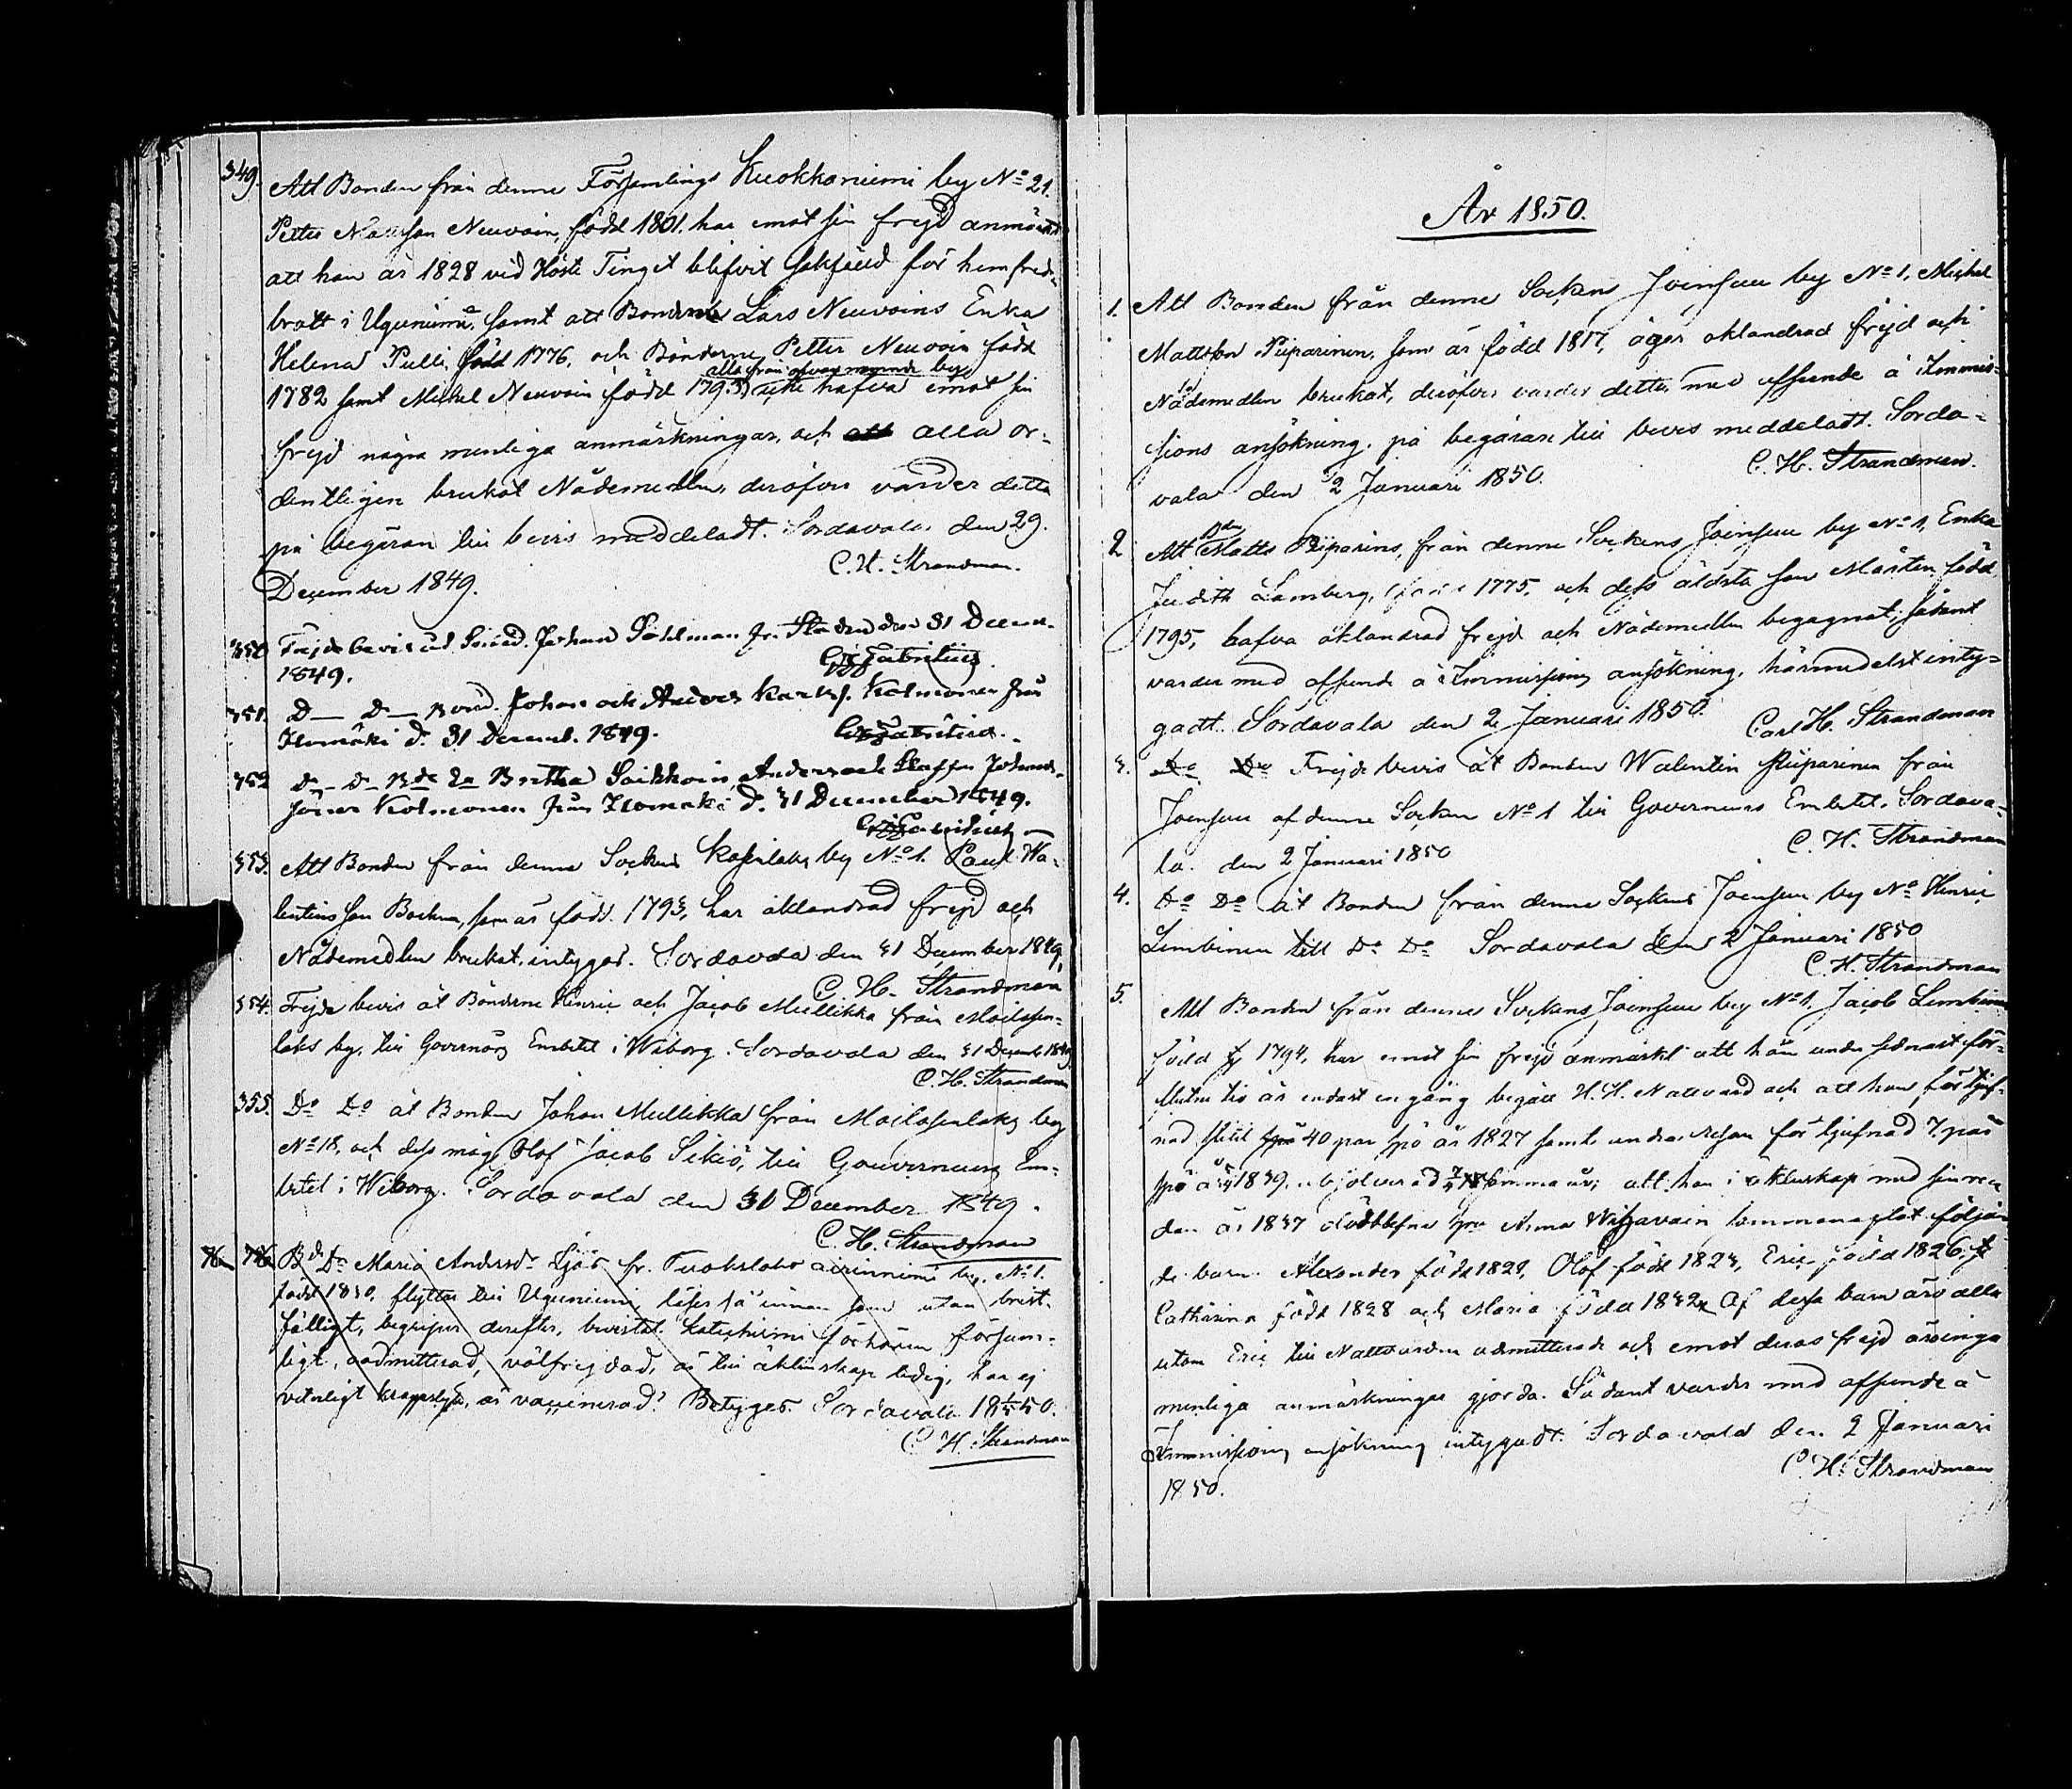 349. Att Bonden från denne Församlings Kuokkaniemi by No 21.
Petter Neuvoin, född 1801. har emot sin frejd anmärkt
att han år 1828 vid Höste Tinget blifvit sakfälld för hemfreds-
brott i Uguniemi, samt att Lars Neuvoins Enka
Helena Pulli, född 1776, och Bönderne Petter Neuvoin född
alla från ofvan nemnde by
1782 samt Michel Neuvoin född 1793, icke hafva emot sin
frejd några menliga anmärkningar, och att alla or-
dentligen brukat Nådemedlen, deröfver varder detta
på begäran till bevis meddeladt. Sordavala den 29.
December 1849. C. H. Strandman.
350 Frejdebevis åt Johan Sahlman fr. Staden den 31 Decemb.
1849.
351. D— D— Johan och Anders Kolmonen från
Ilomäki d. 31 Decemb. 1849.
352 D— D— Britha Saikkoin, Anders och Staffan Johans-
söner Kolmonen från Ilomäki d. 31 December 1849.
353. Att Bonden från denne Sockens by No 1. Paul Wa-
lentinsson som är född 1793, har oklandrad frejd och
Nådemedlen brukat, intygas. Sordavala den 31 December 1849,
C. H. Strandman
354. Frejde bevis åt Bönderne Henric och Jacob Mullikka från Mailasen-
laks by, till Governörs Embetet i Wiborg. Sordavala den 31 Decemb 1849,
C. H. Strandman
355. Do Do åt Bonden Johan Mullikka från Mailasenlaks by
No 18, och dess måg Olof Jacob till Gouverneurs Em-
betet i Wiborg. Sordavala den 31 December 1849.
C. H. Strandman
76 Bde Do Maria Andersdr fr. by. No 1.
född 1830, flyttar till Uguniemi, läser så innan som utan brist-
fälligt, begriper derefter, bevistat Katechismi förhören försum-
ligt, admitterad, välfrejdad, är till äktenskap ledig, har ej
veterligt kroppslyte, är vaccinerad. Betygas. Sordavala 18 50.
C. H. Strandman
År 1850.
1. Att Bonden från denne Socken Joensuu by No 1, Michel
Mattsson Piiparinen, som är född 1817, äger oklandrad frejd och
Nådemedlen brukat, deröfver varder detta med afseende å Immis-
sions ansökning, på begäran till bevis meddeladt. Sorda-
vala den 2 Januari 1850. C. H. Strandman.
2 Att Matts Piiparins, från denne Sockens Joensuu by No 1, Enka
Judith Lamberg, född 1775, och dess äldsta son Mårten född
1795, hafva oklandrad frejd och Nådemedlen begagnat, sådant
varder med afseende å Immissions ansökning, härmedelst inty-
gadt. Sordavala den 2 Januari 1850. Carl H. Strandman
3. Do Do Frejde bevis åt Bonden Walentin Piiparinen från
Joensuu af denne Socken No 1 till Governeurs Embetet. Sordava-
la. den 2 Januari 1850 C. H. Strandman
4. Do Do åt Bonden från denne Sockens Joensuu by No Henric
Limbinen till Do Do Sordavala den 2 Januari 1850
C. H. Strandman
5. Att Bonden från denne Sockens Joensuu by No 1, Jacob Limbinen
född 1794, har emot sin frejd anmärkt att han under sednast för-
flutne tio år endast en gång begått H. H. Nattvard och att han för tjuf-
nad slitit 40 par spö år 1827 samt andra resan för tjufnad 7 par
spö år 1839, samma år; att han i äktenskap med sin re-
dan år 1837 Anna Wihavain sammanaflat följan-
de barn. Alexander född 1822, Olof född 1823, Eric född 1826,
Catharina född 1828 och Maria född 1832. Af dessa barn äro alla
utom Eric till Nattvarden admitterade och emot deras frejd äro inga
menliga anmärkningar gjorda. Sådant varder med afseende å
Immissions ansökning intygadt. Sordavala den 2 Januari
1850. C. H. Strandman